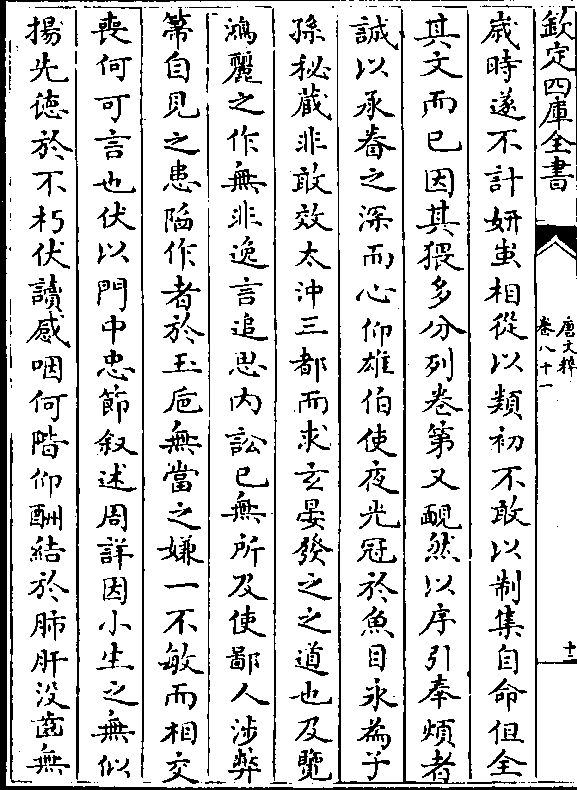 欽定四庫全書
唐文粹
卷八十一
十二
歳時遂不計妍蚩相從以類初不敢以制集自命但全
其文而已因其猥多分列卷第又靦然以序引奉煩者
誠以承眷之深而心仰雄伯使夜光冠於魚目永為子
孫秘藏非敢效太沖三都而求玄晏發之之道也及覽
鴻麗之作無非逸言追思内訟已無所及使鄙人渉弊
箒自見之患陷作者於玉巵無當之嫌一不敏而相交
喪何可言也伏以門中忠節叙述周詳因小生之無似
揚先徳於不朽伏讀感咽何階仰酬結於肺肝没齒無